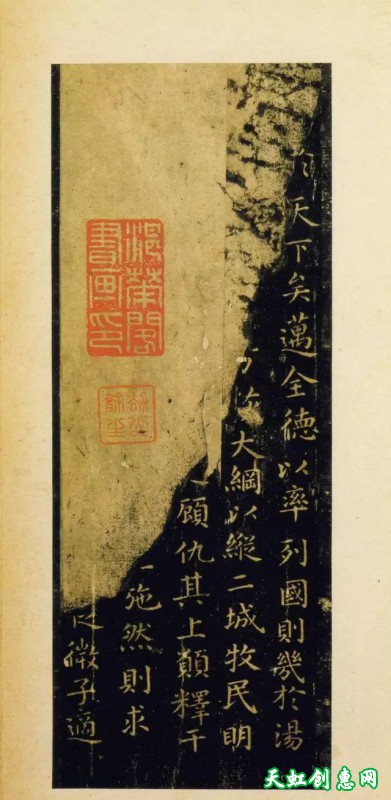 天下矣邁全德以率列國則幾於湯
大綱以縱二城牧民明
顧仇其上願釋干
施然則求
微子適
書畫印
天虹创惠网